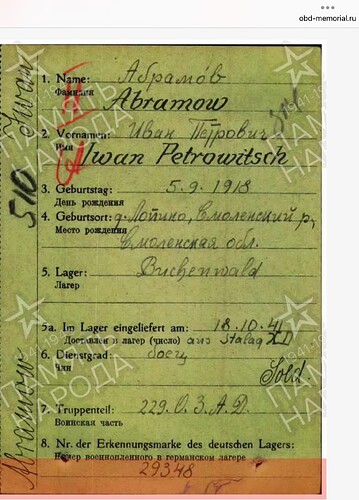 obd-memorial.ru
1. Name: Абрамóв
Фамилия
Abramow
2. Vornamen: Иван Петрович
Имя
Iwan Petrowitsch
3. Geburtstag: 5.9.1918
День рождения
4. Geburtsort: д. Лопино, Смоленский р,
Место рождения
Смоленская обл.
5. Lager: Buchenwald
Лагерь
5a. Im Lager eingeliefert am: 18.10.41
Доставлен в лагерь (число) aus Stalag XD
6. Dienstgrad: боец
Чин
Sold
7. Truppenteil: 229. О.З.А.Д.
Воинская часть
8. Nr. der Erkennungsmarke des deutschen Lagers:
Номер военнопленного в германском лагере
29348
Iwan
510
Abramow
ПАМЯТЬ НАРОДА
1941-1945